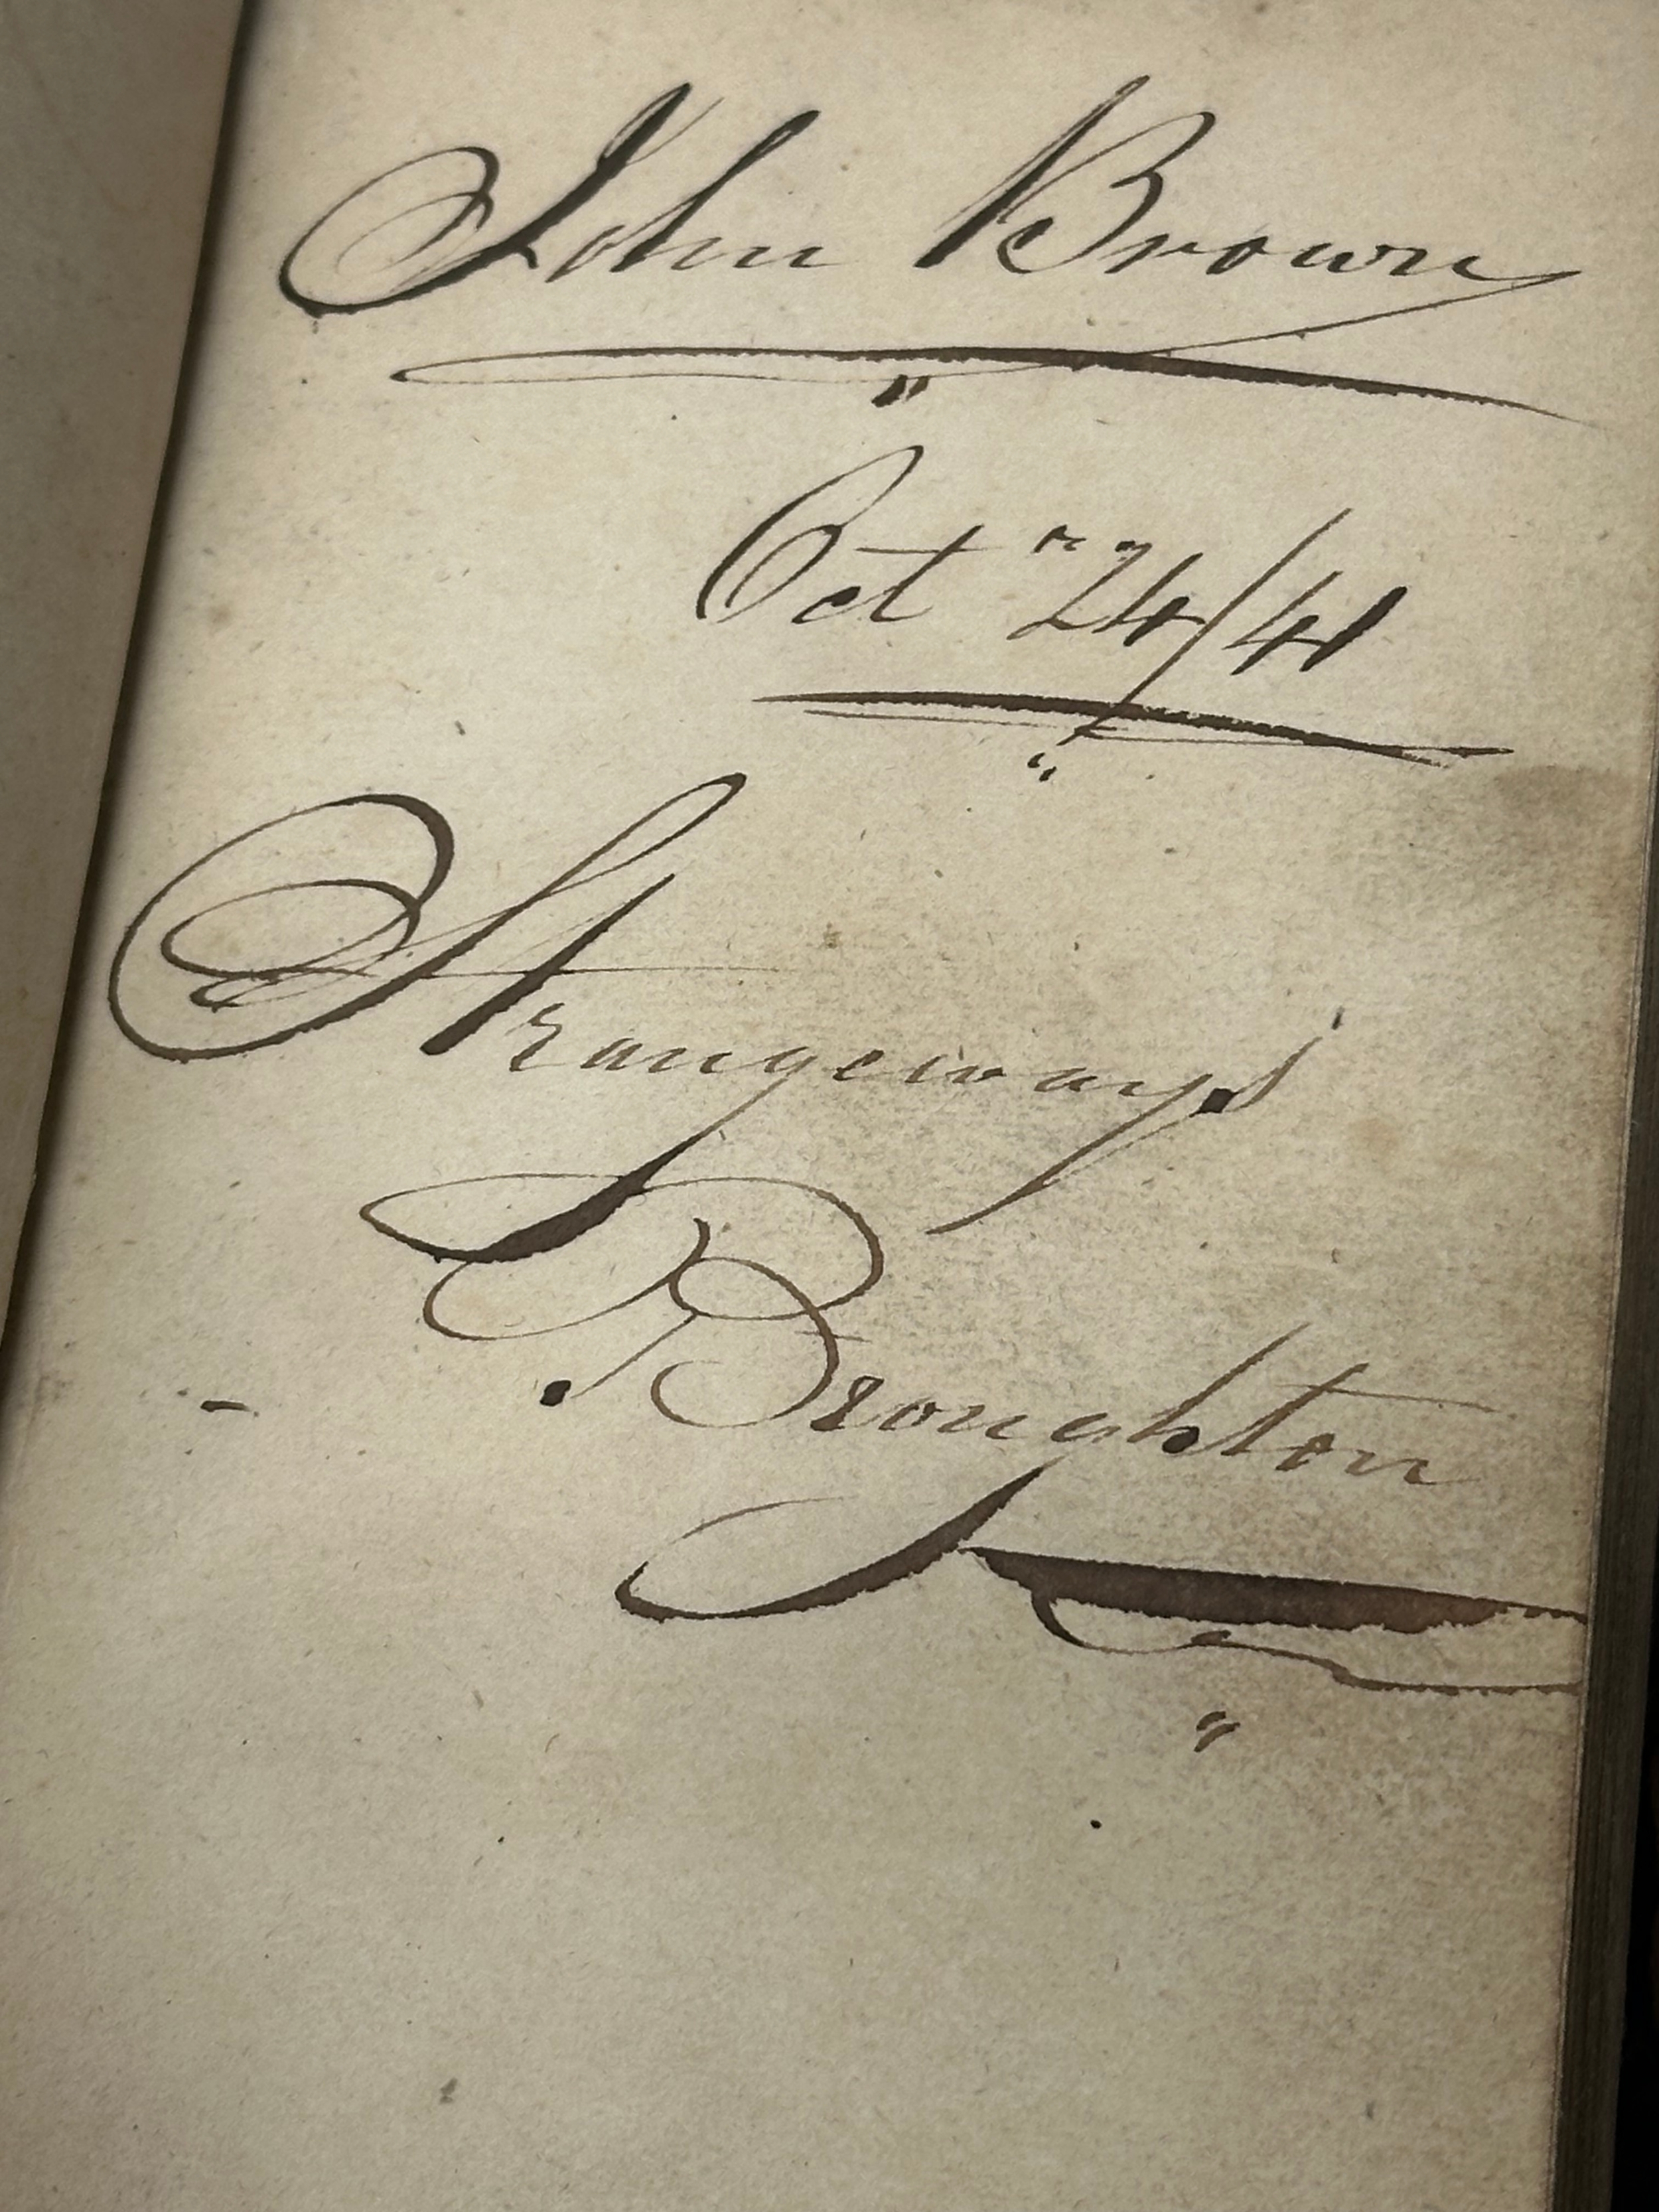 John Brown
Oct 24/41
Strangeways
Broughton